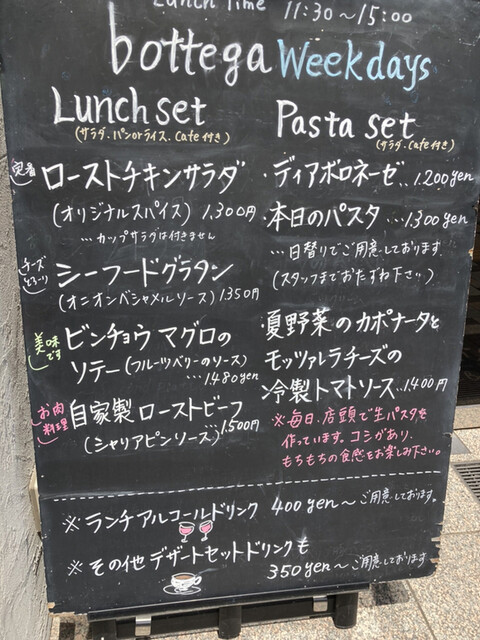 Lunch Time 11:30～15:00
bottega Weekdays
Lunch set
(サラダ・パンorライス、Cafe付き)
定番
ローストチキンサラダ
(オリジナルスパイス) 1,300円
…カップサラダは付きません
チーズとろ～り
シーフードグラタン
(オニオンベシャメルソース) 1350円
美味です
ビンチョウマグロの
ソテー(フルーツベリーのソース)
…1480yen
お肉料理
自家製ローストビーフ
(シャリアピンソース) …1,500円
Pasta set
(サラダ・Cafe付き)
・ディアボロネーゼ…1,200yen
・本日のパスタ…1,300yen
…日替りでご用意しております
(スタッフまでおたずね下さい)
・夏野菜のカポナータと
モッツァレラチーズの
冷製トマトソース…1,400円
※毎日、店頭で生パスタを
作っています。コシがあり、
もちもちの食感もお楽しみ下さい。
※ランチアルコールドリンク 400yen～ご用意しております。
※その他デザートセットドリンクも
350yen～ご用意しております